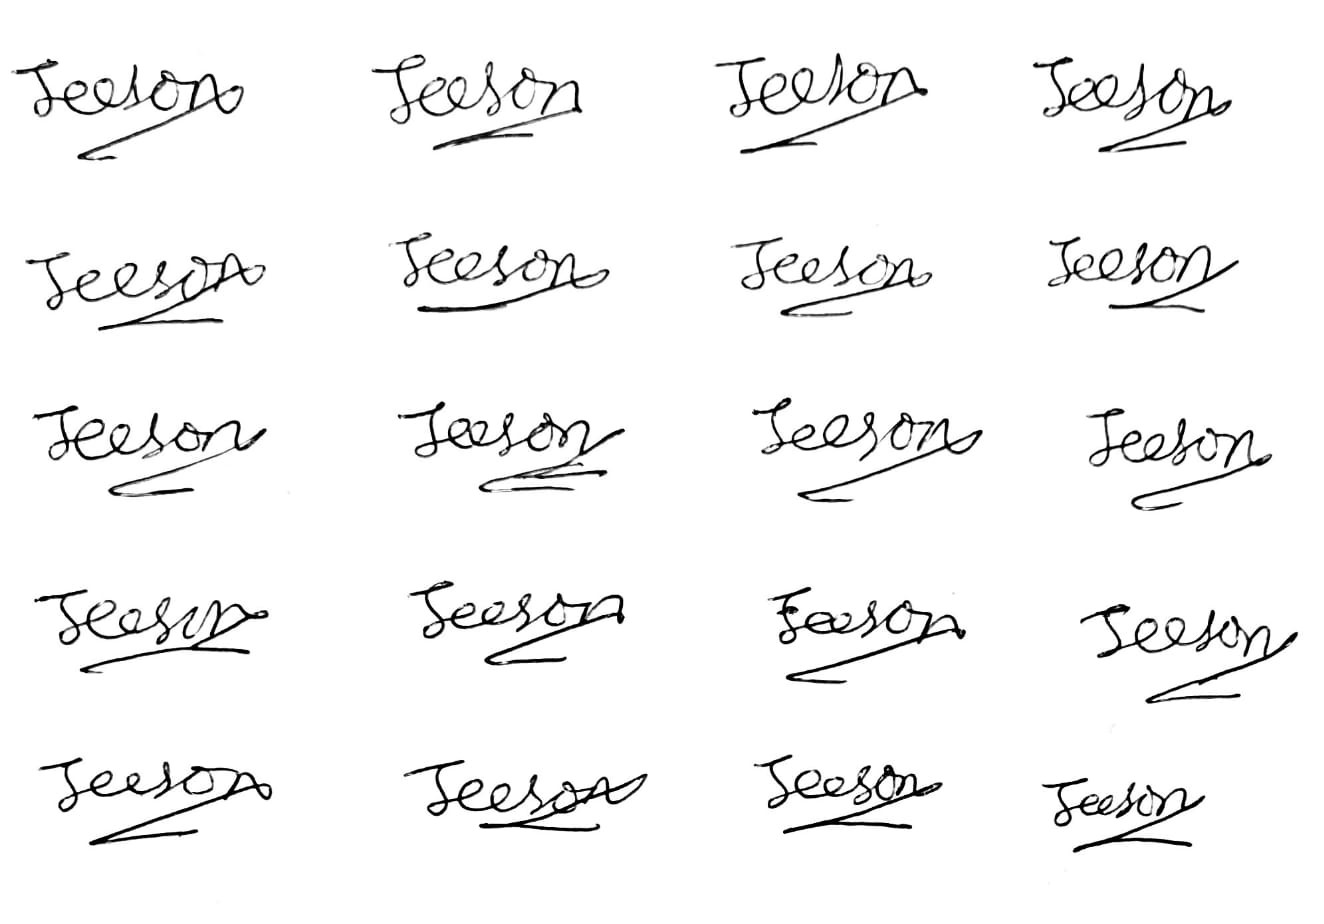 Jeeson Jeeson Jeeson Jeeson
Jeeson Jeeson Jeeson Jeeson
Jeeson Jeeson Jeeson Jeeson
Jeeson Jeeson Jeeson Jeeson
Jeeson Jeeson Jeeson Jeeson